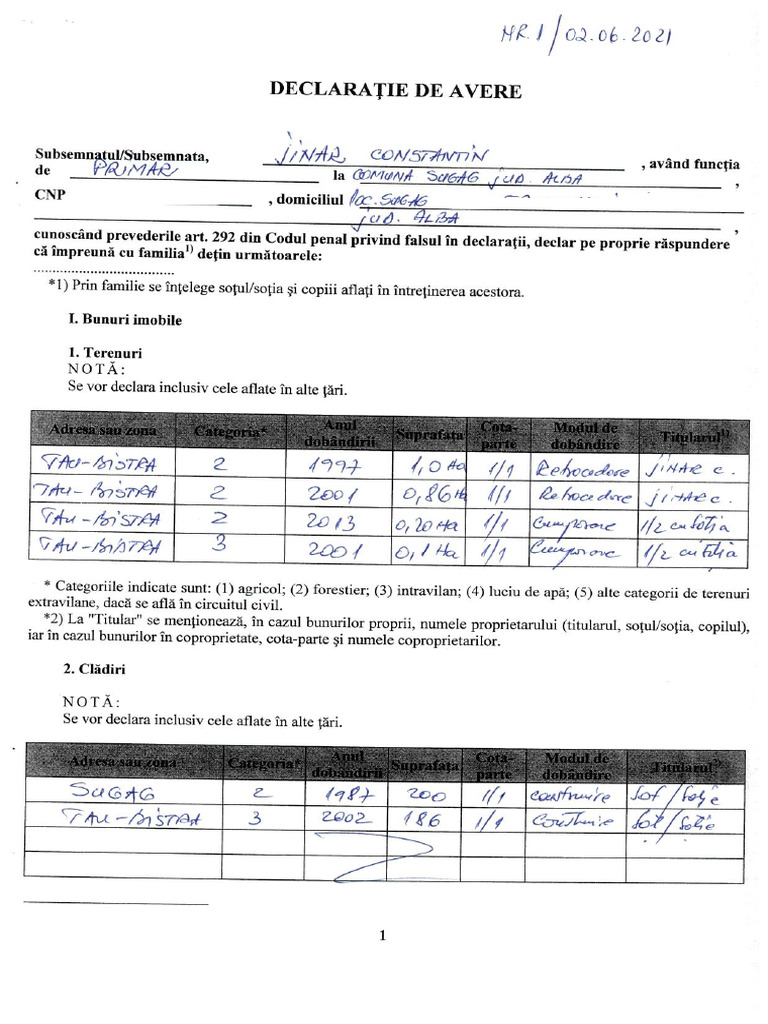 NR.1/02.06.2021
DECLARAŢIE DE AVERE
Subsemnatul/Subsemnata, JINAR CONSTANTIN , având funcţia
de PRIMAR la COMUNA SUGAG JUD. ALBA ,
CNP , domiciliul loc. SUGAG
JUD. ALBA ,
cunoscând prevederile art. 292 din Codul penal privind falsul în declaraţii, declar pe proprie răspundere
că împreună cu familia1) deţin următoarele:
...................................
*1) Prin familie se înţelege soţul/soţia şi copiii aflaţi în întreţinerea acestora.
I. Bunuri imobile
1. Terenuri
NOTĂ:
Se vor declara inclusiv cele aflate în alte ţări.
Adresa sau zona Categoria* Anul dobândirii Suprafaţa Cota-parte Modul de dobândire Titularul1)
TAU-BISTRA 2 1997 1,0 Ha 1/1 Retrocedare JINAR C.
TAU-BISTRA 2 2001 0,86 Ha 1/1 Retrocedare JINAR C.
TAU-BISTRA 2 2013 0,20 Ha 1/1 Cumparare 1/2 cu soţia
TAU-BISTRA 3 2001 0,1 Ha 1/1 Cumparare 1/2 cu soţia
* Categoriile indicate sunt: (1) agricol; (2) forestier; (3) intravilan; (4) luciu de apă; (5) alte categorii de terenuri
extravilane, dacă se află în circuitul civil.
*2) La "Titular" se menţionează, în cazul bunurilor proprii, numele proprietarului (titularul, soţul/soţia, copilul),
iar în cazul bunurilor în coproprietate, cota-parte şi numele coproprietarilor.
2. Clădiri
NOTĂ:
Se vor declara inclusiv cele aflate în alte ţări.
Adresa sau zona Categoria* Anul dobândirii Suprafaţa Cota-parte Modul de dobândire Titularul2)
SUGAG 2 1987 200 1/1 construire Soţ/Soţie
TAU-BISTRA 3 2002 186 1/1 Construire Soţ/Soţie
1